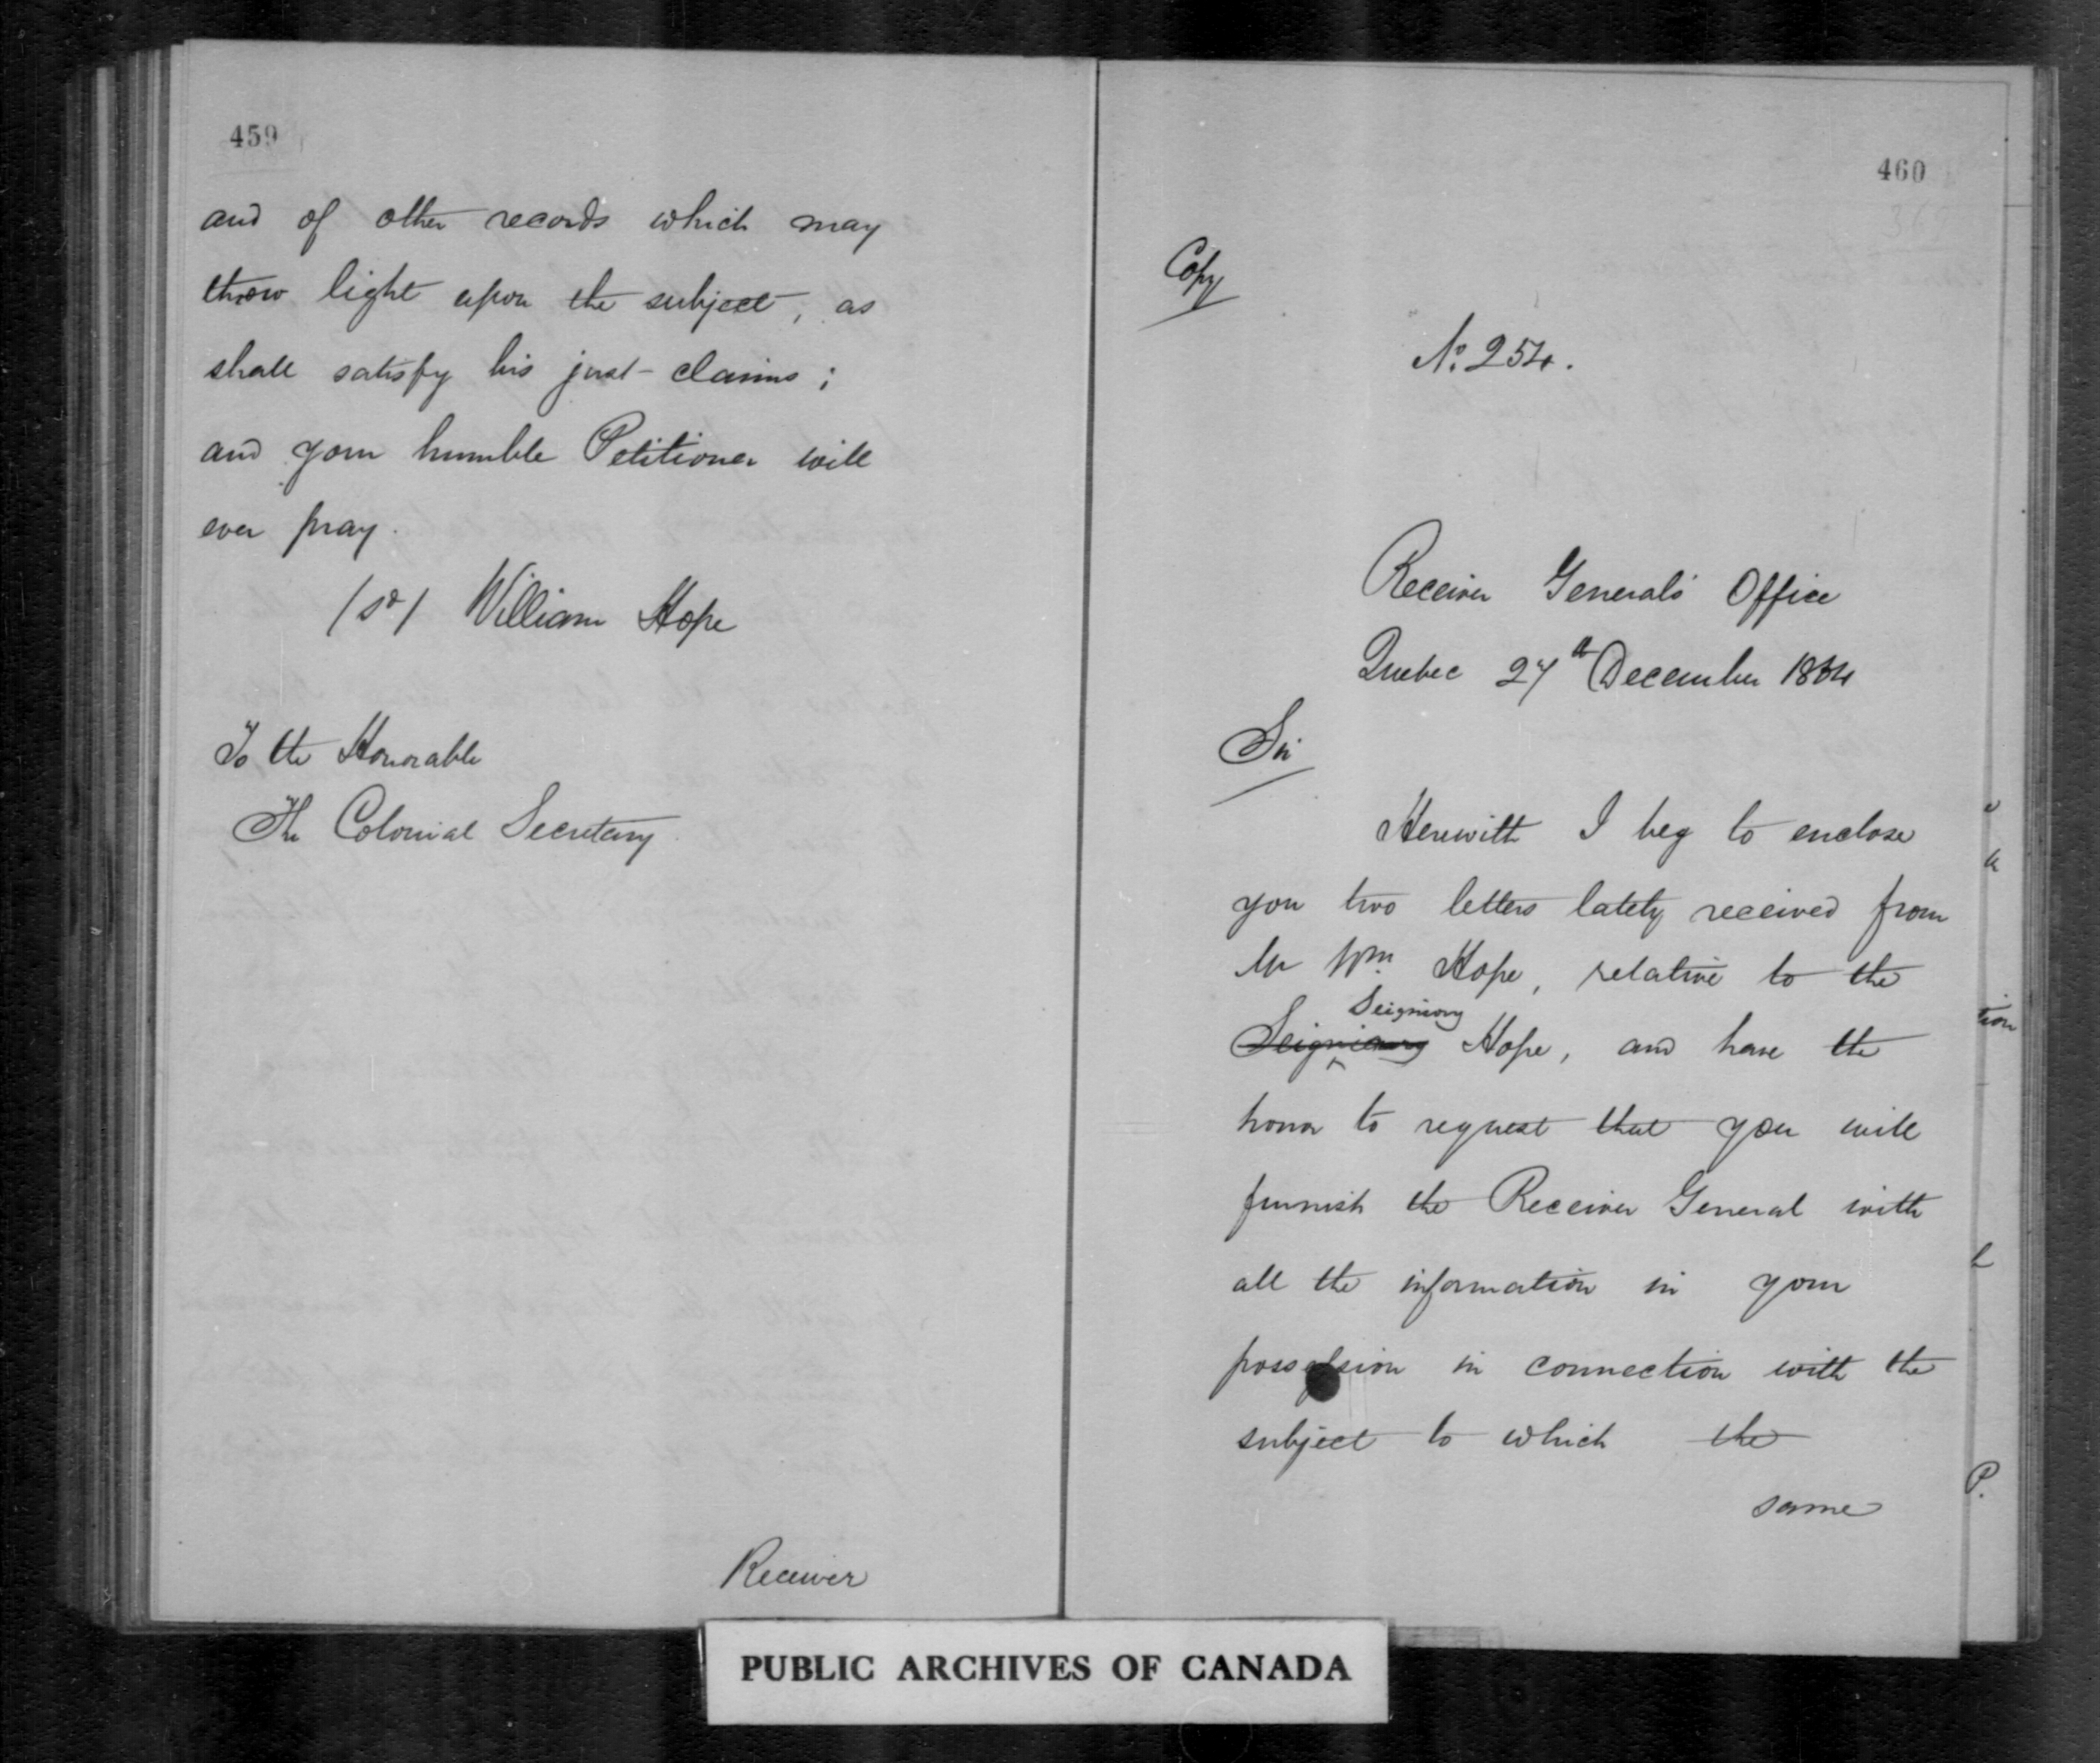 459
and of other records which may
throw light upon the subject, as
shall satisfy his just claims;
and your humble Petitioner will
ever pray.
(sd) William Hope
To the Honorable
The Colonial Secretary
Receiver
460
Copy
No. 254.
Receiver General's Office
Quebec 27th December
Sir
Herewith I beg to enclose
you two letters lately received from
Mr Wm. Hope, relative to the
Seigniory
Hope, and have the
honor to request that you will
furnish the Receiver General with
all the information in your
possession in connection with the
subject to which the
same
tion
P.
PUBLIC ARCHIVES OF CANADA